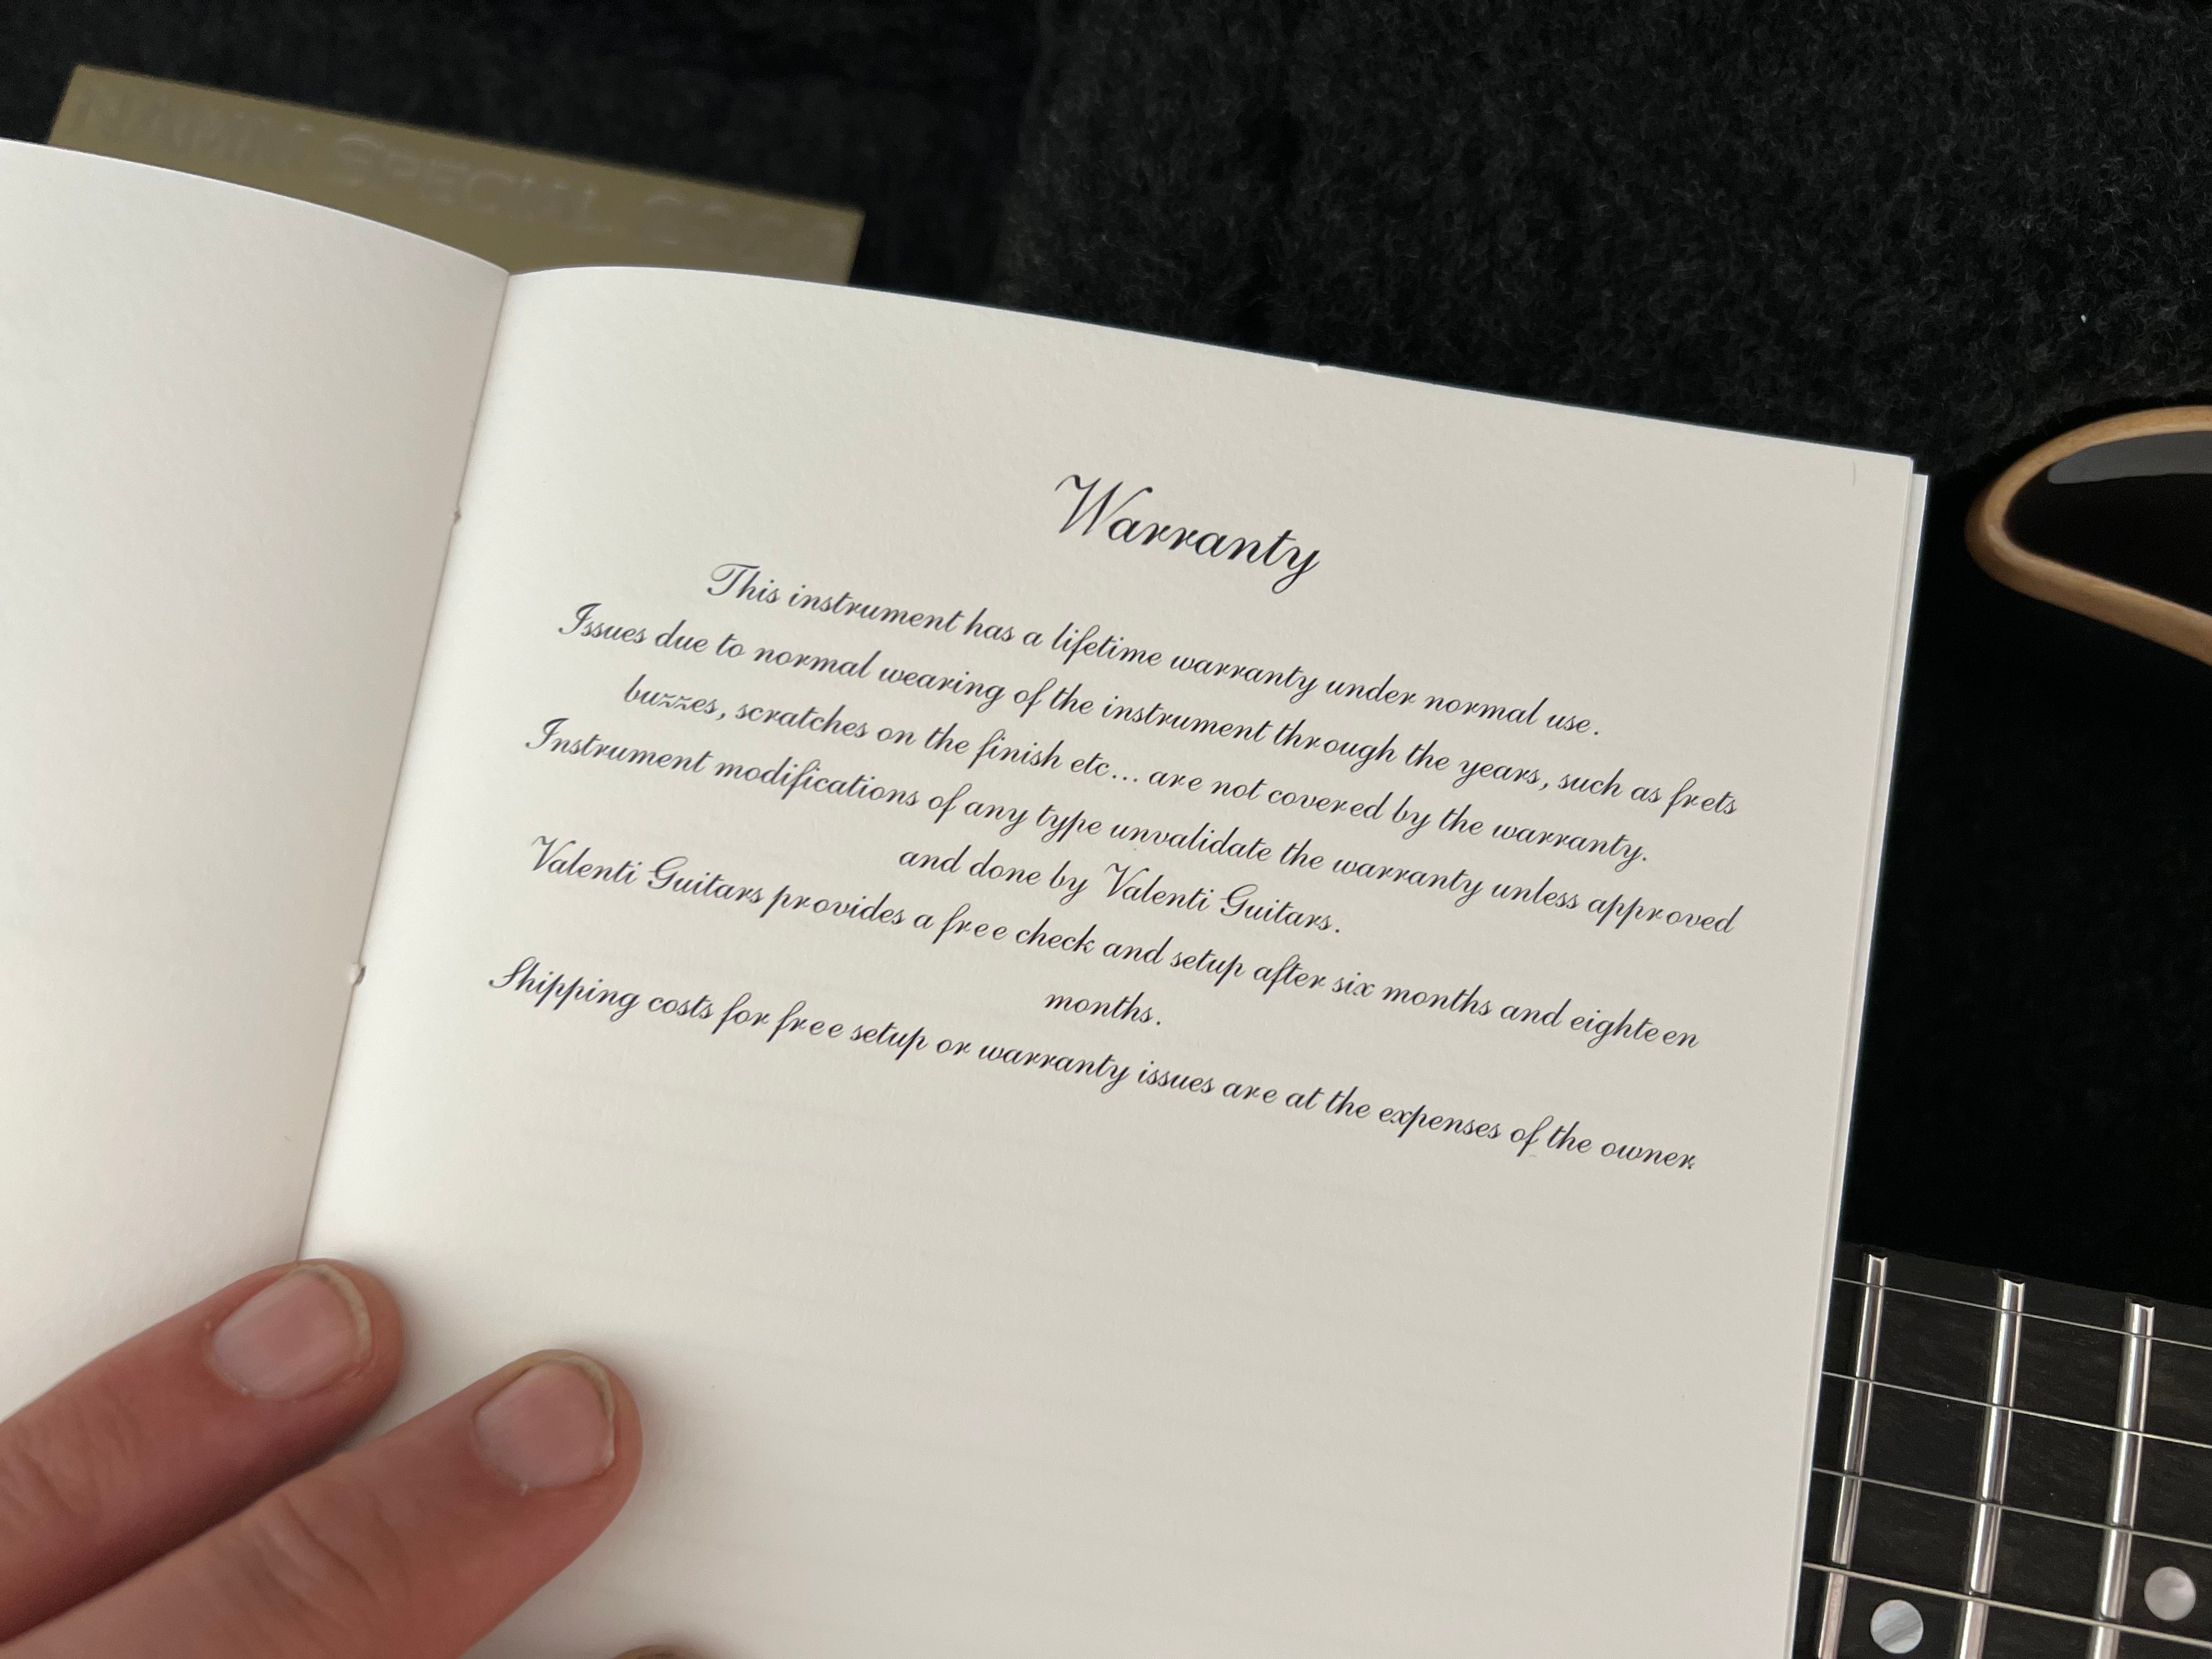 SPECIAL
Warranty
This instrument has a lifetime warranty under normal use.
Issues due to normal wearing of the instrument through the years, such as frets
buzzes, scratches on the finish etc... are not covered by the warranty.
Instrument modifications of any type unvalidate the warranty unless approved
and done by Valenti Guitars.
Valenti Guitars provides a free check and setup after six months and eighteen
months.
Shipping costs for free setup or warranty issues are at the expenses of the owner